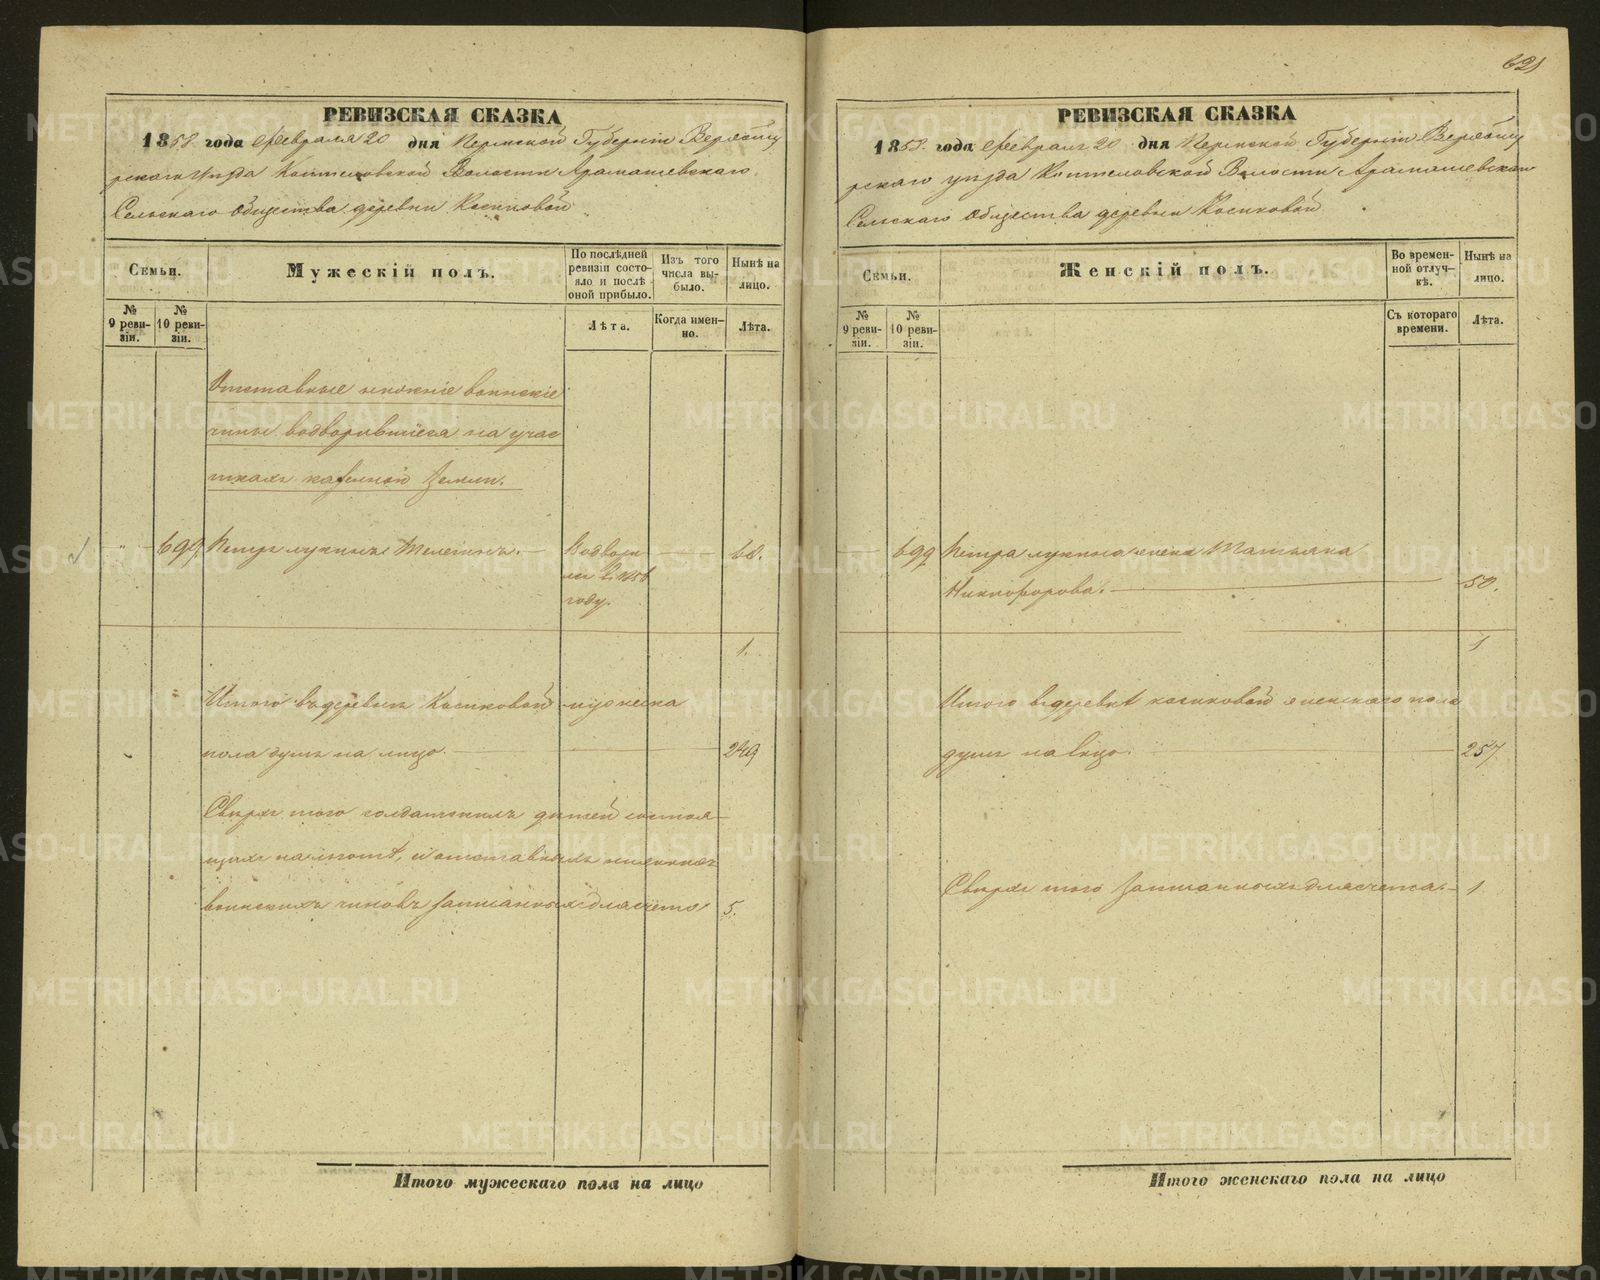 621
РЕВИЗСКАЯ СКАЗКА
1858. года Февраля 20 дня Пермской Губернiи Верхоту
рскаго уѣзда Коптеловской Волости Арамашевскаго
Сельскаго Общества деревни Косиковой
Семьи.
Мужескiй полъ.
По послѣдней ревизiи состо-
яло и послѣ оной прибыло.
Изъ того числа вы-
было.
Нынѣ на лицо.
№ 9 реви-
зiи.
№ 10 реви-
зiи.
Лѣта.
Когда имен-
но.
Лѣта.
Отставные нижнiе воинскiе
чины водворившiеся на учас
ткахъ казенной земли.
" 699 Петръ Лукинъ Телегинъ. — Водвори — 60.
лся в 1856
году.
1.
Итого въ деревнѣ Косиковой мужеска
пола душъ на лицо — 249
Сверхъ того солдатскихъ дѣтей состоя-
щихъ на льготѣ, и отставныхъ нижнихъ
воинскихъ чиновъ записанныхъ для счета 5.
Итого мужескаго пола на лицо
РЕВИЗСКАЯ СКАЗКА
1858. года Февраля 20 дня Пермской Губернiи Верхоту
рскаго уѣзда Коптеловской Волости Арамашевскаго
Сельскаго Общества деревни Косиковой
Семьи.
Женскiй полъ.
Во времен-
ной отлуч-
кѣ.
Нынѣ на лицо.
№ 9 реви-
зiи.
№ 10 реви-
зiи.
Съ котораго времени.
Лѣта.
— 699 Петра Лукина жена Татьяна
Никифорова. — 50.
1
Итого въ деревнѣ Косиковой женскаго пола
душъ на лицо — 257
Сверхъ того записанныхъ для счета. — 1
Итого женскаго пола на лицо
METRIKI.GASO-URAL.RU